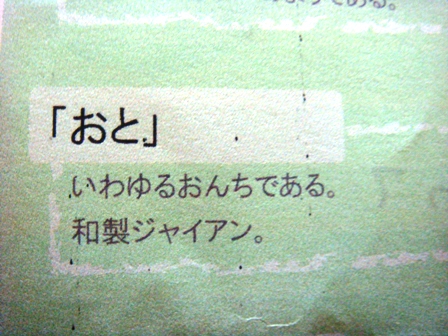 「おと」
いわゆるおんちである。
和製ジャイアン。